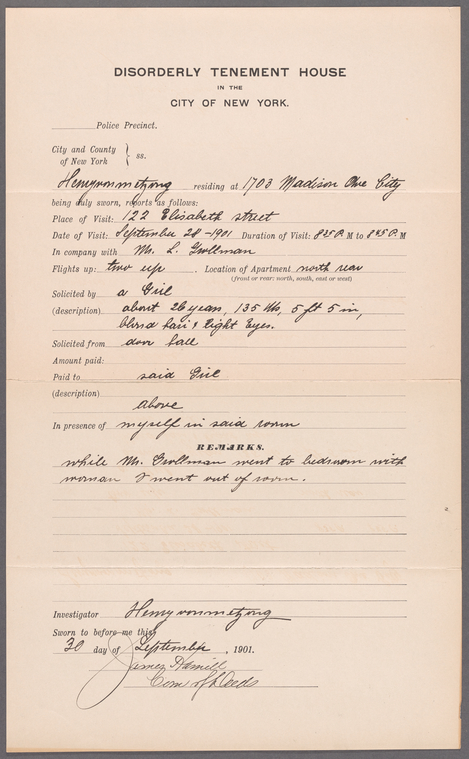 DISORDERLY TENEMENT HOUSE
IN THE
CITY OF NEW YORK.
Police Precinct.
City and County
of New York } ss.
Henry von metzong residing at 1703 Madison Ave City
being duly sworn, reports as follows:
Place of Visit: 122 Elisabeth street
Date of Visit: September 28 - 1901 Duration of Visit: 8 25 P. M to 8 45 P. M
In company with Mr. L. Grollman
Flights up: two up . Location of Apartment north rear
(front or rear: north, south, east or west)
Solicited by a Girl
(description) about 26 years, 135 lbs, 5 ft 5 in,
blond hair & light Eyes.
Solicited from door hall
Amount paid:
Paid to said Girl
(description)
above
In presence of myself in said room
REMARKS.
while Mr. Grollman went to bedroom with
woman I went out of room.
Investigator Henry von metzong
Sworn to before me this
30 day of September , 1901.
James Hamill
Com of Deeds